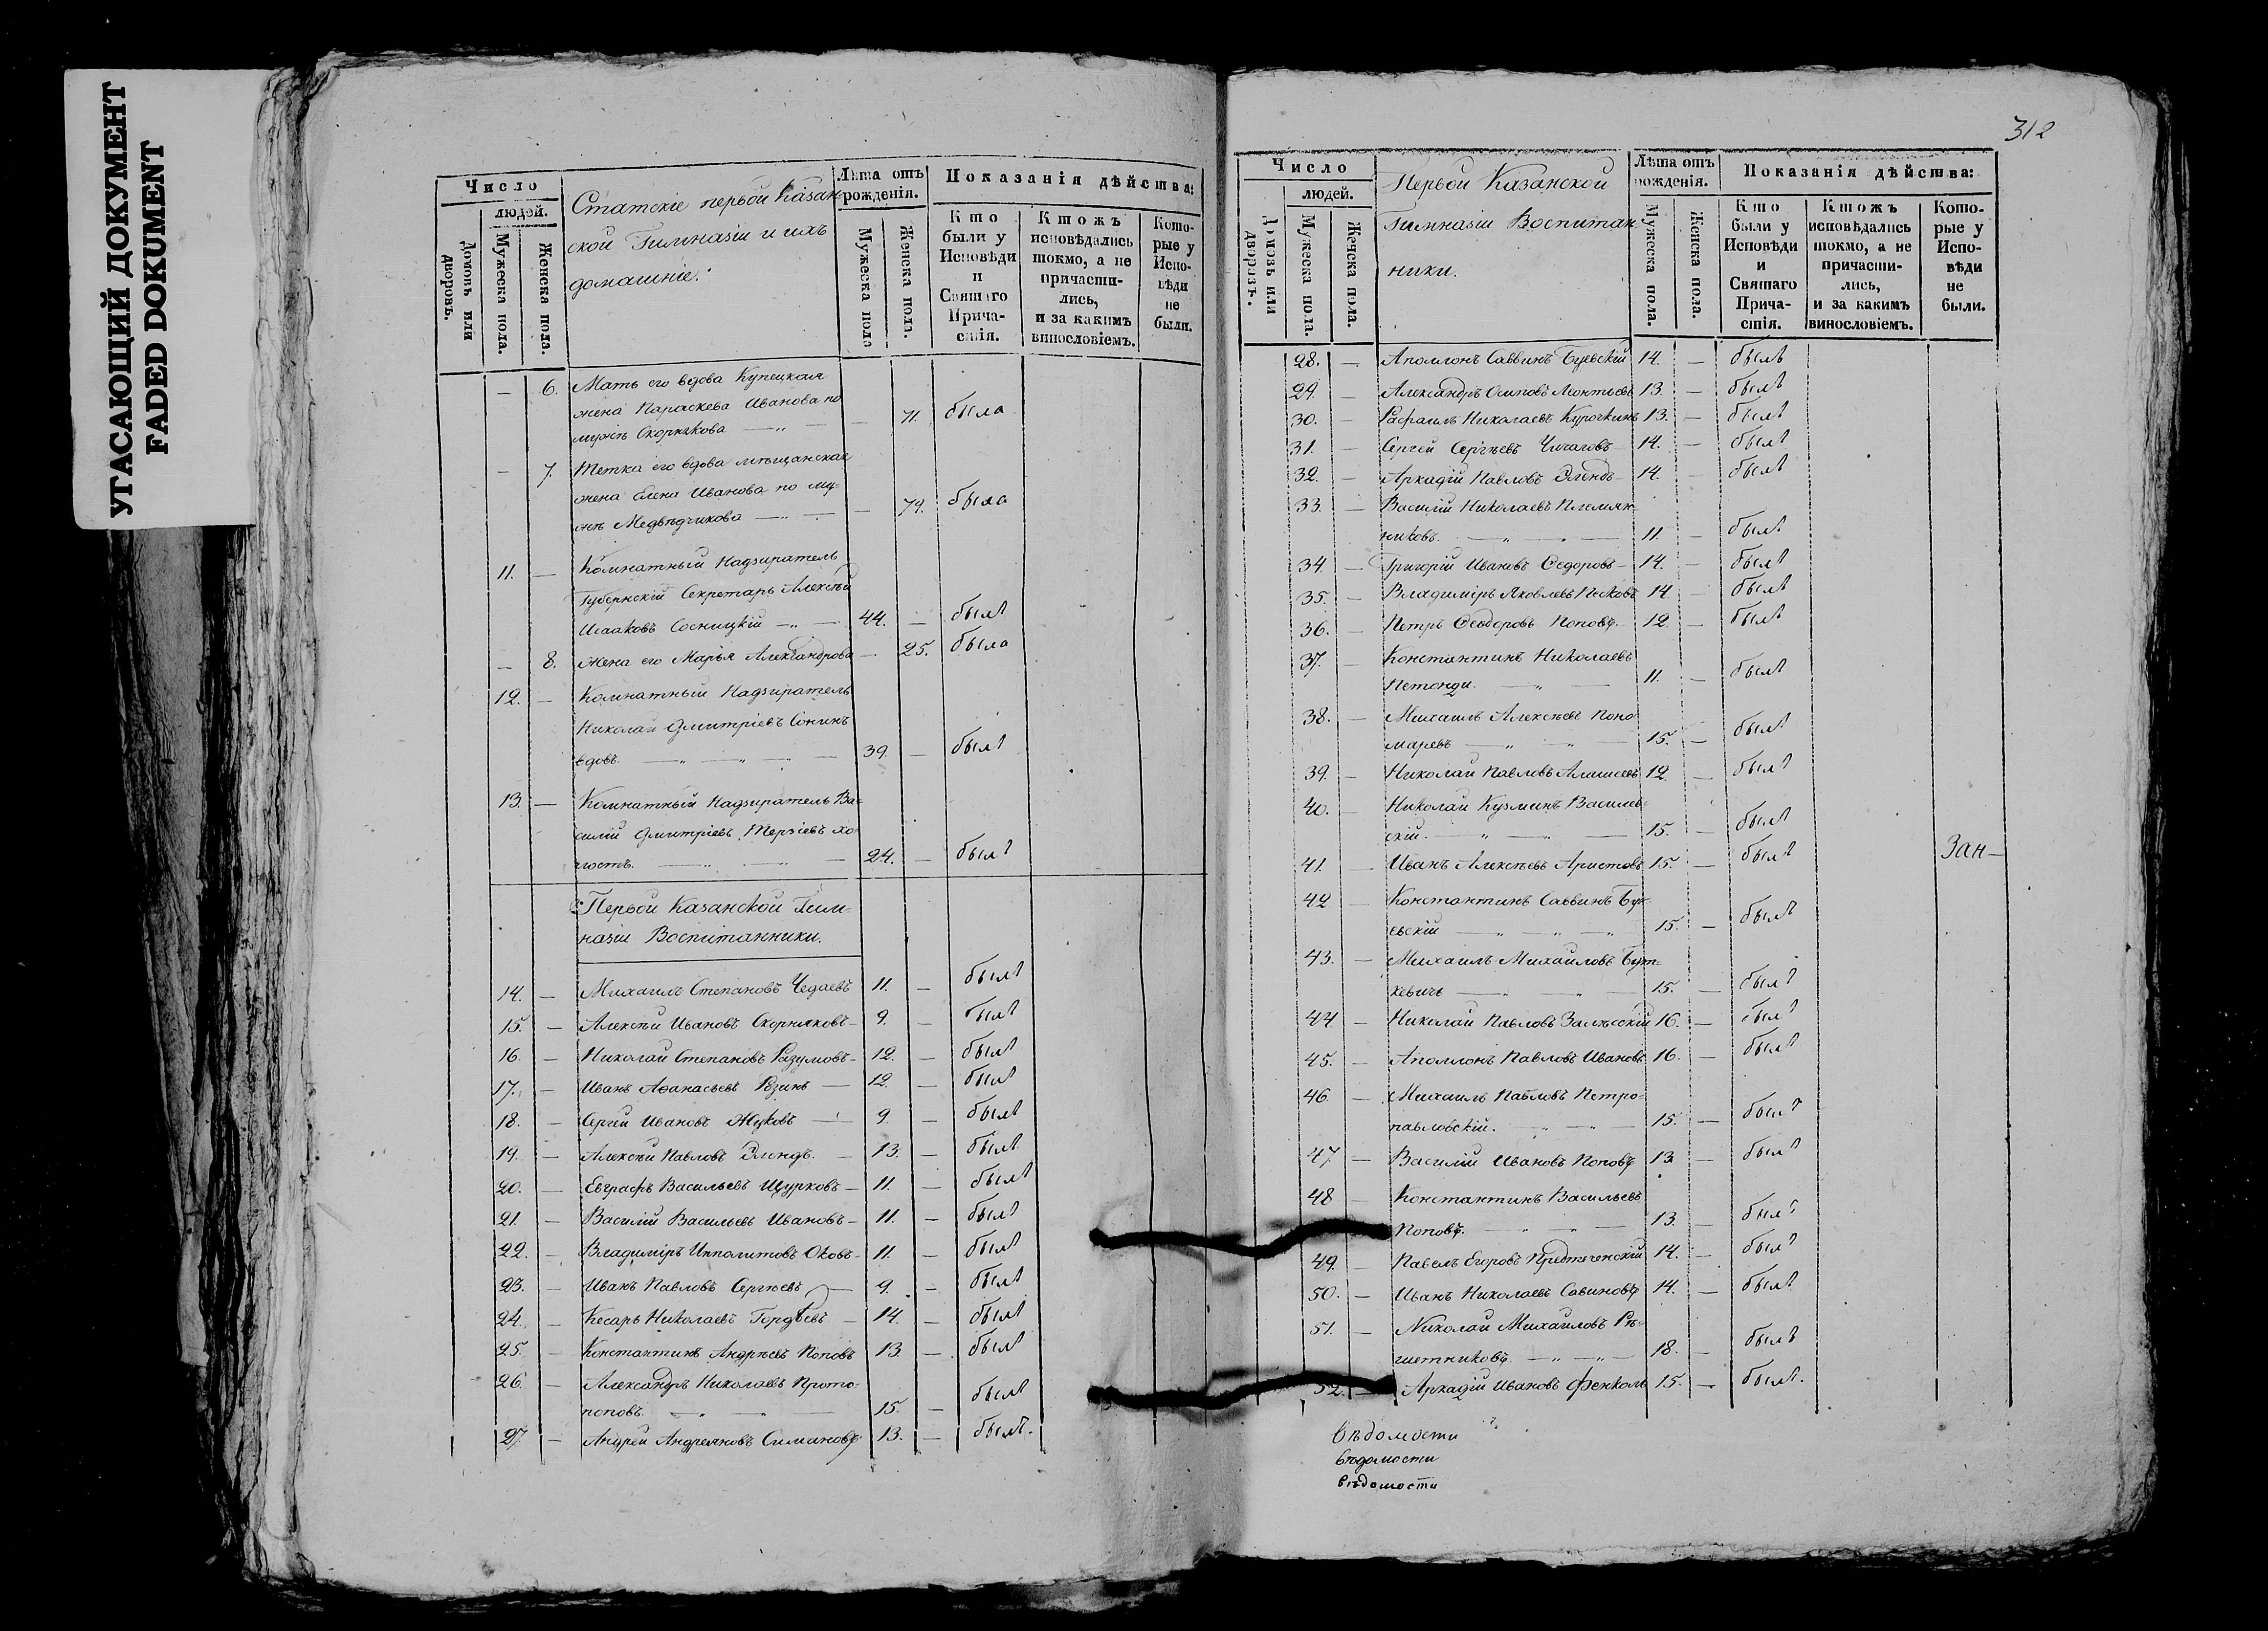 УГАСАЮЩИЙ ДОКУМЕНТ
FADED DOKUMENT
Число
людей.
Домовъ или дворовъ.
Мужеска пола.
Женска пола.
Статскіе первой Казан-
ской Гимназіи и ихъ
домашніе.
Лѣта отъ рожденія.
Мужеска пола
Женска пола.
Показанія дѣйства:
Кто были у Исповѣди и Святаго Прича-стія.
Ктожъ исповѣдались токмо, а не причасти-лись, и за какимъ винословіемъ.
Кото-рые у Испо-вѣди не были.
— 6. Мать его вдова Купецкая
жена Параскева Иванова по
мужѣ Скорнякова — 71. была
— 7. Тетка его вдова мѣщанская
жена Елена Иванова по му-
жѣ Медвѣдчикова — 74. была
11. — Комнатный Надзиратель
Губернскій Секретарь Алексѣй
Исааковъ Сосницкій — 44. — былъ
— 8. Жена его Марья Александрова — 25. была
12. — Комнатный Надзиратель
Николай Дмитріевъ Сонинъ
вдовъ. — 39. — былъ
13. — Комнатный Надзиратель Ва-
силій Дмитріевъ Терзіевъ хо-
лостъ. — 24. — былъ
Первой Казанской Гим-
назіи Воспитанники.
14. — Михаилъ Степановъ Чедаевъ 11. — былъ
15. — Алексѣй Ивановъ Скорняковъ — 9. — былъ
16. — Николай Степановъ Разумовъ — 12. — былъ
17. — Иванъ Аѳанасьевъ Розинъ — 12. — былъ
18. — Сергѣй Ивановъ Жуковъ — 9. — былъ
19. — Алексѣй Павловъ Элендъ. — 13. — былъ
20. — Евграфъ Васильевъ Щурковъ — 11. — былъ
21. — Василій Васильевъ Ивановъ — 11. — былъ
22. — Владиміръ Ипполитовъ Оковъ — 11. — былъ
23. — Иванъ Павловъ Сергѣевъ — 9. — былъ
24. — Кесарь Николаевъ Гордѣевъ — 14. — былъ
25. — Константинъ Андрѣевъ Поповъ 13. — былъ
26. — Александръ Николаевъ Прото-
поповъ. — 15. — былъ
27. — Андрей Андреяновъ Симановъ 13. — былъ.
312
Число
людей.
Домовъ или дворовъ.
Мужеска пола.
Женска пола.
Первой Казанской
Гимназіи Воспитан-
ники.
Лѣта отъ рожденія.
Мужеска пола.
Женска пола.
Показанія дѣйства:
Кто были у Исповѣди и Святаго Прича-стія.
Ктожъ исповѣдались токмо, а не причасти-лись, и за какимъ винословіемъ.
Кото-рые у Испо-вѣди не были.
28. — Аполлонъ Саввинъ Буевскій 14. — былъ
29. — Александръ Осиповъ Леонтьевъ 13. — былъ
30. — Рафаилъ Николаевъ Курочкинъ 13. — былъ
31. — Сергей Сергѣевъ Чичаговъ 14. — былъ
32. — Аркадій Павловъ Элендъ — 14. — былъ
33. — Василій Николаевъ Племян-
никовъ. — 11. — былъ
34. — Григорій Ивановъ Ѳедоровъ — 14. — былъ
35. — Владиміръ Яковлевъ Песковъ 14. — былъ
36. — Петръ Ѳеодоровъ Поповъ. 12. — былъ
37. — Константинъ Николаевъ
Петонди. — 11. — былъ
38. — Михаилъ Алексѣевъ Поно-
маревъ — 15. — былъ
39. — Николай Павловъ 12. — былъ
40. — Николай Кузминъ Василев-
скій. — 15. — былъ
41. — Иванъ Алексѣевъ Аристовъ 15. — былъ
Зан—
42 — Константинъ Саввинъ Бу-
евскій — 15. — былъ
43. — Михаилъ Михайловъ Бут-
кевичь — 15. — былъ
44 — Николай Павловъ Залѣсскій 16. — былъ
45. — Аполлонъ Павловъ Ивановъ 16. — былъ
46 — Михаилъ Павловъ Петро-
павловскій. — 15. — былъ
47 — Василій Ивановъ Поповъ 13 — былъ
48 — Константинъ Васильевъ
Поповъ. — 13. — былъ
49. — Павелъ Егоровъ Предтеченскій 14. — былъ
50. — Иванъ Николаевъ Савиновъ 14. — былъ
51. — Николай Михаиловъ Рѣ-
шетниковъ. — 18. — былъ
52. — Аркадій Ивановъ 15. — былъ.
Вѣдомости
вѣдомости
вѣдомости